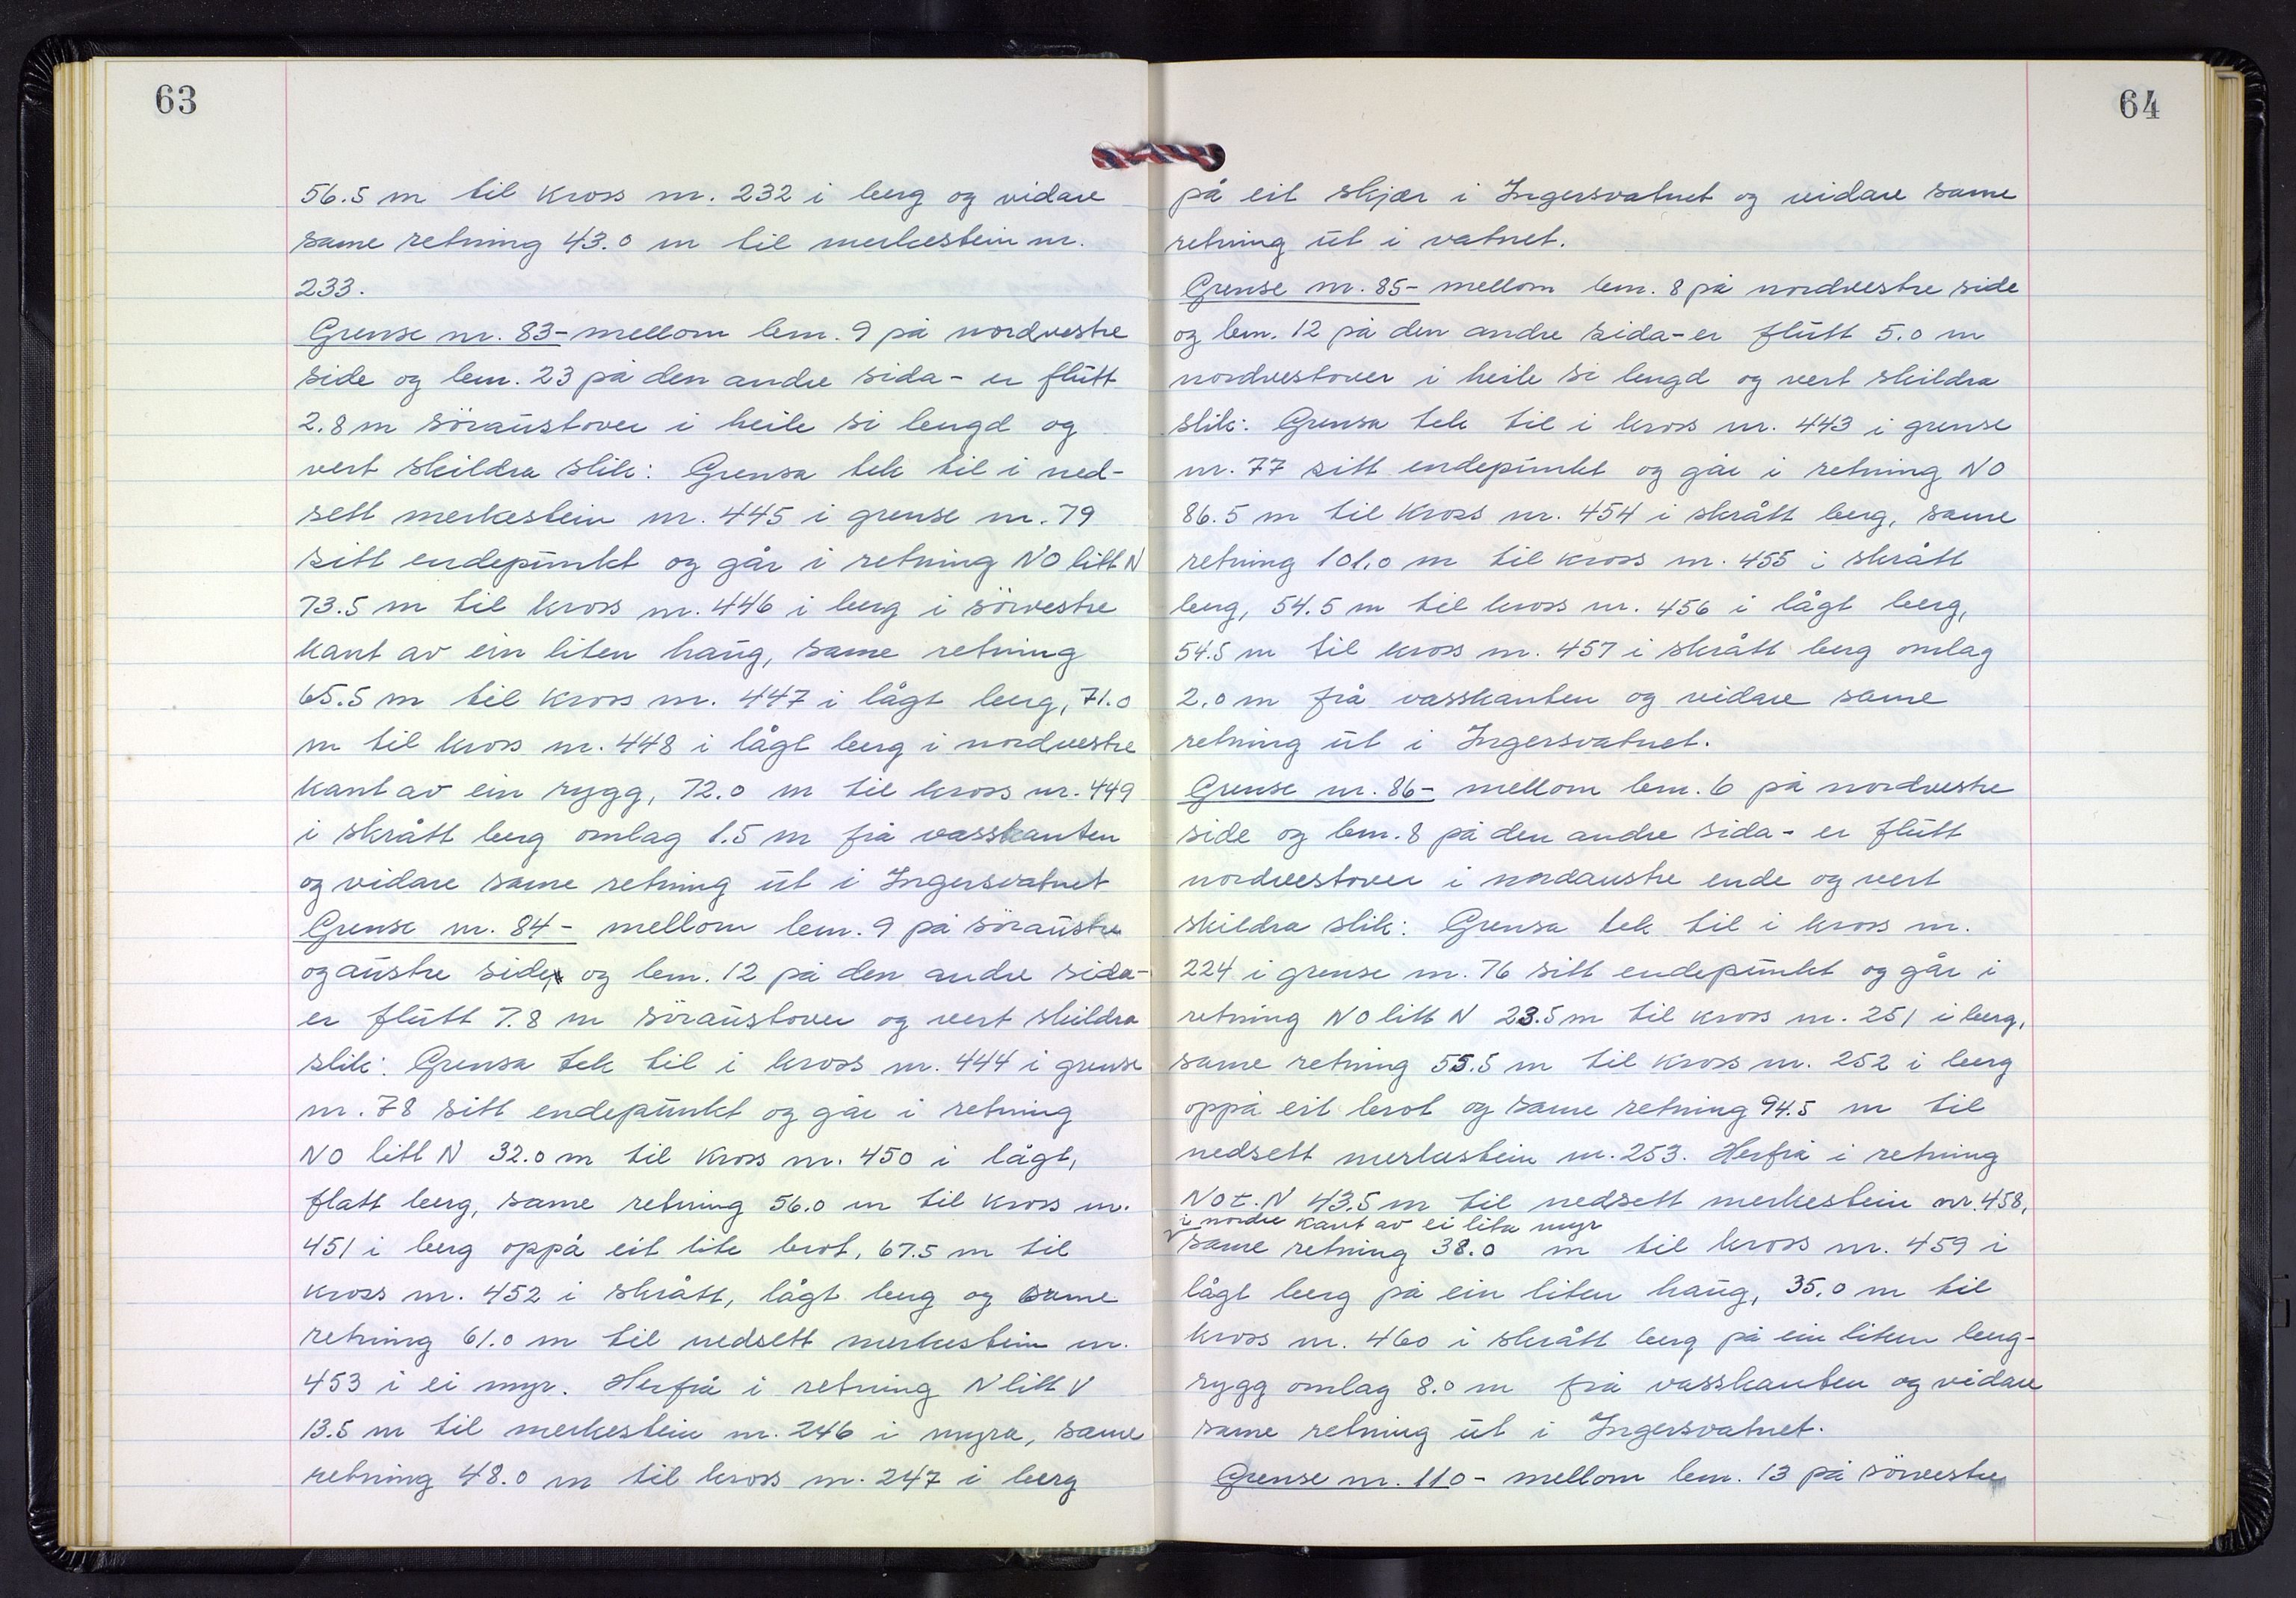 63
56.5 m til kross nr. 232 i berg og vidare
same retning 43.0 m til merkestein nr.
233.
Grense nr. 83- mellom lem. 9 på nordvestre
side og lem. 23 på den andre sida- er flutt
2.8 m söraustover i heile si lengd og
vert skildra slik: Grensa tek til i ned-
sett merkestein nr. 445 i grense nr. 79
sitt endepunkt og går i retning NO litt N
73.5 m til kross nr. 446 i berg i sörvestre
kant av ein liten haug, same retning
65.5 m til kross nr. 447 i lågt berg, 71.0
m til kross nr. 448 i lågt berg i nordvestre
kant av ein rygg, 72.0 m til kross nr. 449
i skrått berg omlag 1.5 m frå vasskanten
og vidare same retning ut i Ingersvatnet
Grense nr. 84- mellom lem. 9 på söraustre
og austre side og lem. 12 på den andre sida-
er flutt 7.8 m söraustover og vert skildra
slik: Grensa tek til i kross nr. 444 i grense
nr. 78 sitt endepunkt og går i retning
NO litt N 32.0 m til kross nr. 450 i lågt,
flatt berg, same retning 56.0 m til kross nr.
451 i berg oppå eit lite brot, 67.5 m til
kross nr. 452 i skrått, lågt berg og same
retning 61.0 m til nedsett merkestein nr.
453 i ei myr. Herfrå i retning N litt V
13.5 m til merkestein nr. 246 i myra, same
retning 48.0 m til kross nr. 247 i berg
64
på eit skjær i Ingersvatnet og vidare same
retning ut i vatnet.
Grense nr. 85- mellom lem. 8 på nordvestre side
og lem. 12 på den andre sida- er flutt 5.0 m
nordvestover i heile si lengd og vert skildra
slik: Grensa tek til i kross nr. 443 i grense
nr. 77 sitt endepunkt og går i retning NO
86.5 m til kross nr. 454 i skrått berg, same
retning 101.0 m til kross nr. 455 i skrått
berg, 54.5 m til kross nr. 456 i lågt berg,
54.5 m til kross nr. 457 i skrått berg omlag
2.0 m frå vasskanten og vidare same
retning ut i Ingersvatnet.
Grense nr. 86- mellom lem. 6 på nordvestre
side og lem. 8 på den andre sida- er flutt
nordvestover i nordaustre ende og vert
skildra slik: Grensa tek til i kross nr.
224 i grense nr. 76 sitt endepunkt og går i
retning NO litt N 23.5 m til kross nr. 251 i berg,
same retning 55.5 m til kross nr. 252 i berg
oppå eit brot og same retning 94.5 m til
nedsett merkestein nr. 253. Herfrå i retning
NO t. N 43.5 m til nedsett merkestein nr. 458,
i nordre kant av ei lita myr
same retning 38.0 m til kross nr. 459 i
lågt berg på ein liten haug, 35.0 m til
kross nr. 460 i skrått berg på ein liten berg-
rygg omlag 8.0 m frå vasskanten og vidare
same retning ut i Ingersvatnet.
Grense nr. 110- mellom lem. 13 på sörvestre